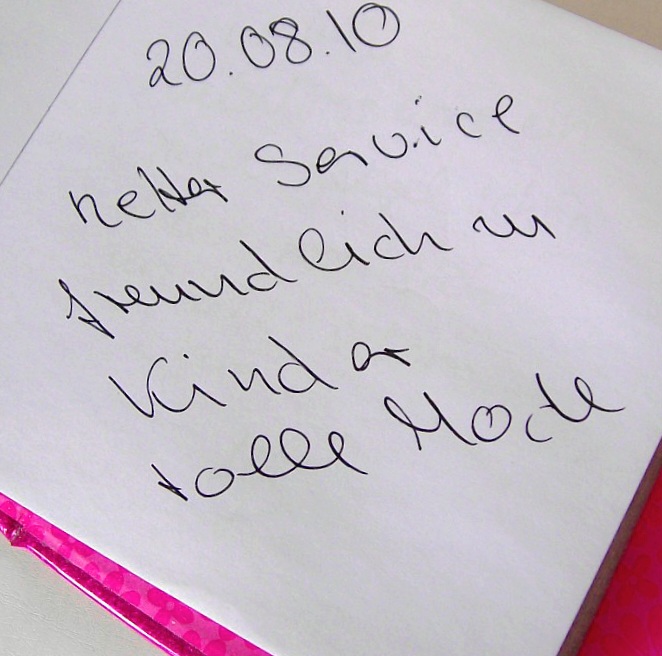 20.08.10
netter Service
freundlich zu
Kinder
tolle Mode